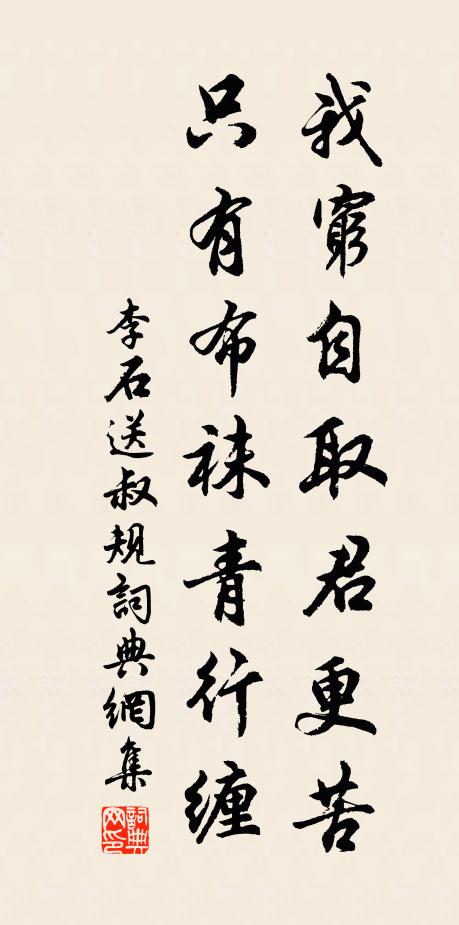 我窮自取君更苦
只有布袜青行缠
李石送叔規詞典網集
詞典网印